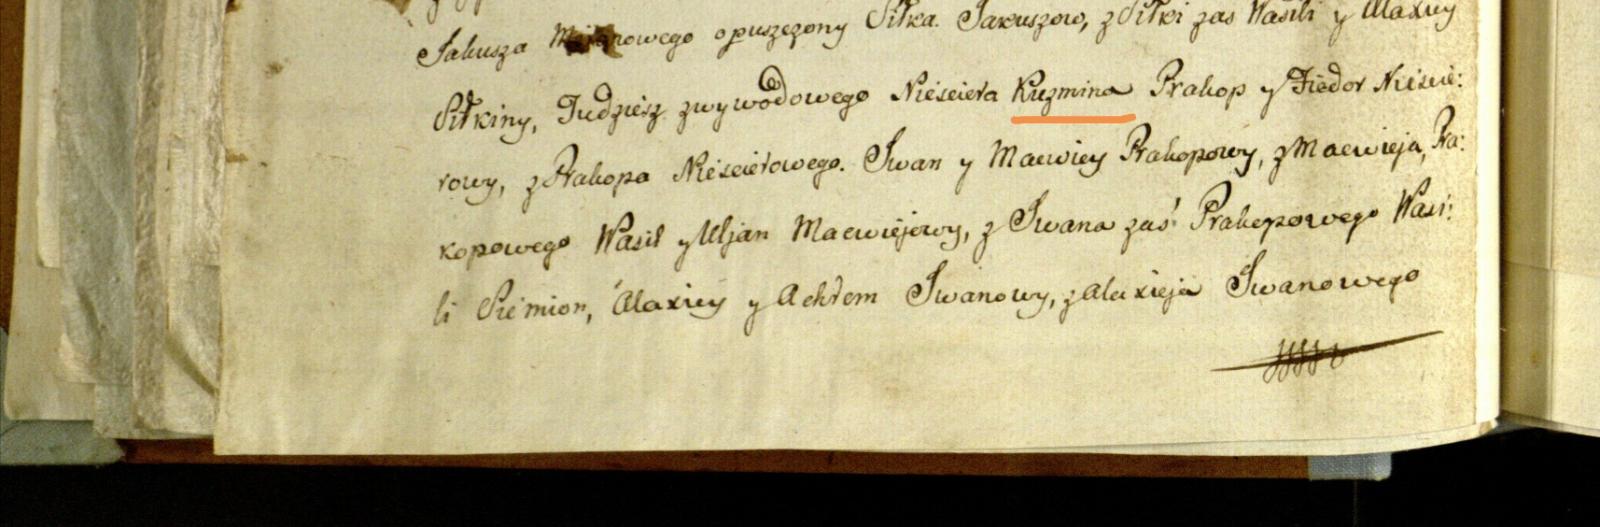 Jakusza opuszczony Siłka Jakuszow, z Siłki zas Wasili y Alaxiey
Siłkiny, Tudziesz zwywodowego Nieściera Kuzmina Prakop y Fiedor Nieście:
rowy, z Prakopa Nieścierowego. Iwan y Macwiey Prakopowy, z Macwieja, Pra:
kopowego Wasil y Uljan Macwiejowy, z Iwana zaś Prakopowego Wasi:
li Siemion, Alaxiey y Achrem Iwanowy, z Alaxieja Iwanowego